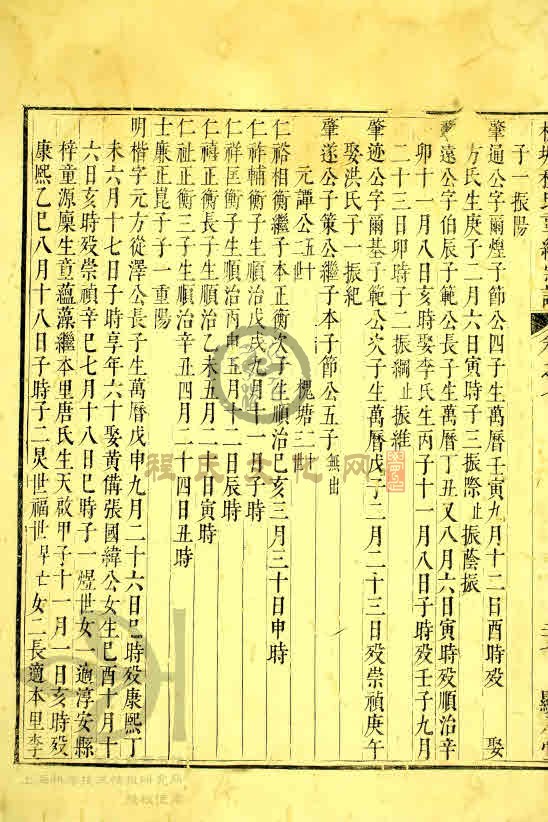 子一振陽
肇通公字爾煌子節公四子生萬曆壬寅九月十二日酉時殁 娶
方氏生庚子二月六日寅時子三振際 振蔭振
遠公字伯辰子範公長子生萬曆丁丑又八月六日寅時殁順治辛
卯十一月八日亥時娶李氏生丙子十一月八日子時殁壬子九月
二十三日卯時子二振綱 振維
肇迹公字爾基子範公次子生萬曆戊子二月二十三日殁崇禎庚午
娶洪氏子一振紀
肇遂公子策公繼子本子節公五子無出
元譚公五世 槐塘二世
仁裕相衡繼子本正衡次子生順治己亥三月三十日申時
仁祚輔衡子生順治戊戌九月十一日子時
仁祥匡衡子生順治丙申五月十二日辰時
仁禧正衡長子生順治乙未五月二十日寅時
仁祉正衡三子生順治辛丑四月二十四日丑時
士廉正崑子子一重陽
明楷字元方從澤公長子生萬曆戊申九月二十六日巳時殁康熙丁
未六月十七日子時享年六十娶黃備張國緯公女生己酉十月十
六日亥時殁崇禎辛巳七月十八日巳時子一煜世女一適淳安縣
梓童源廩生童蘊藻繼本里唐氏生天啟甲子十一月一日亥時殁
康熙乙巳八月十八日子時子二炅世福世早亡女二長適本里李
程氏文化网